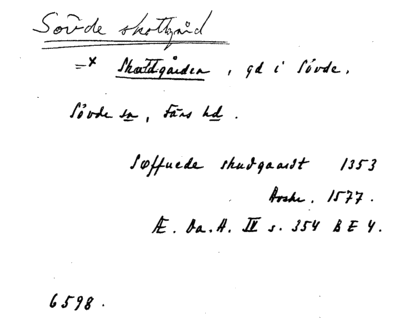 Sövde skottgård
=* Skottgården, gd i Sövde.
Sövde sn, Färs hd.
Søffuede skudgaardt 1353
Avskr. 1577.
Æ. Da. A. IV s. 354 B E 4.
6598.